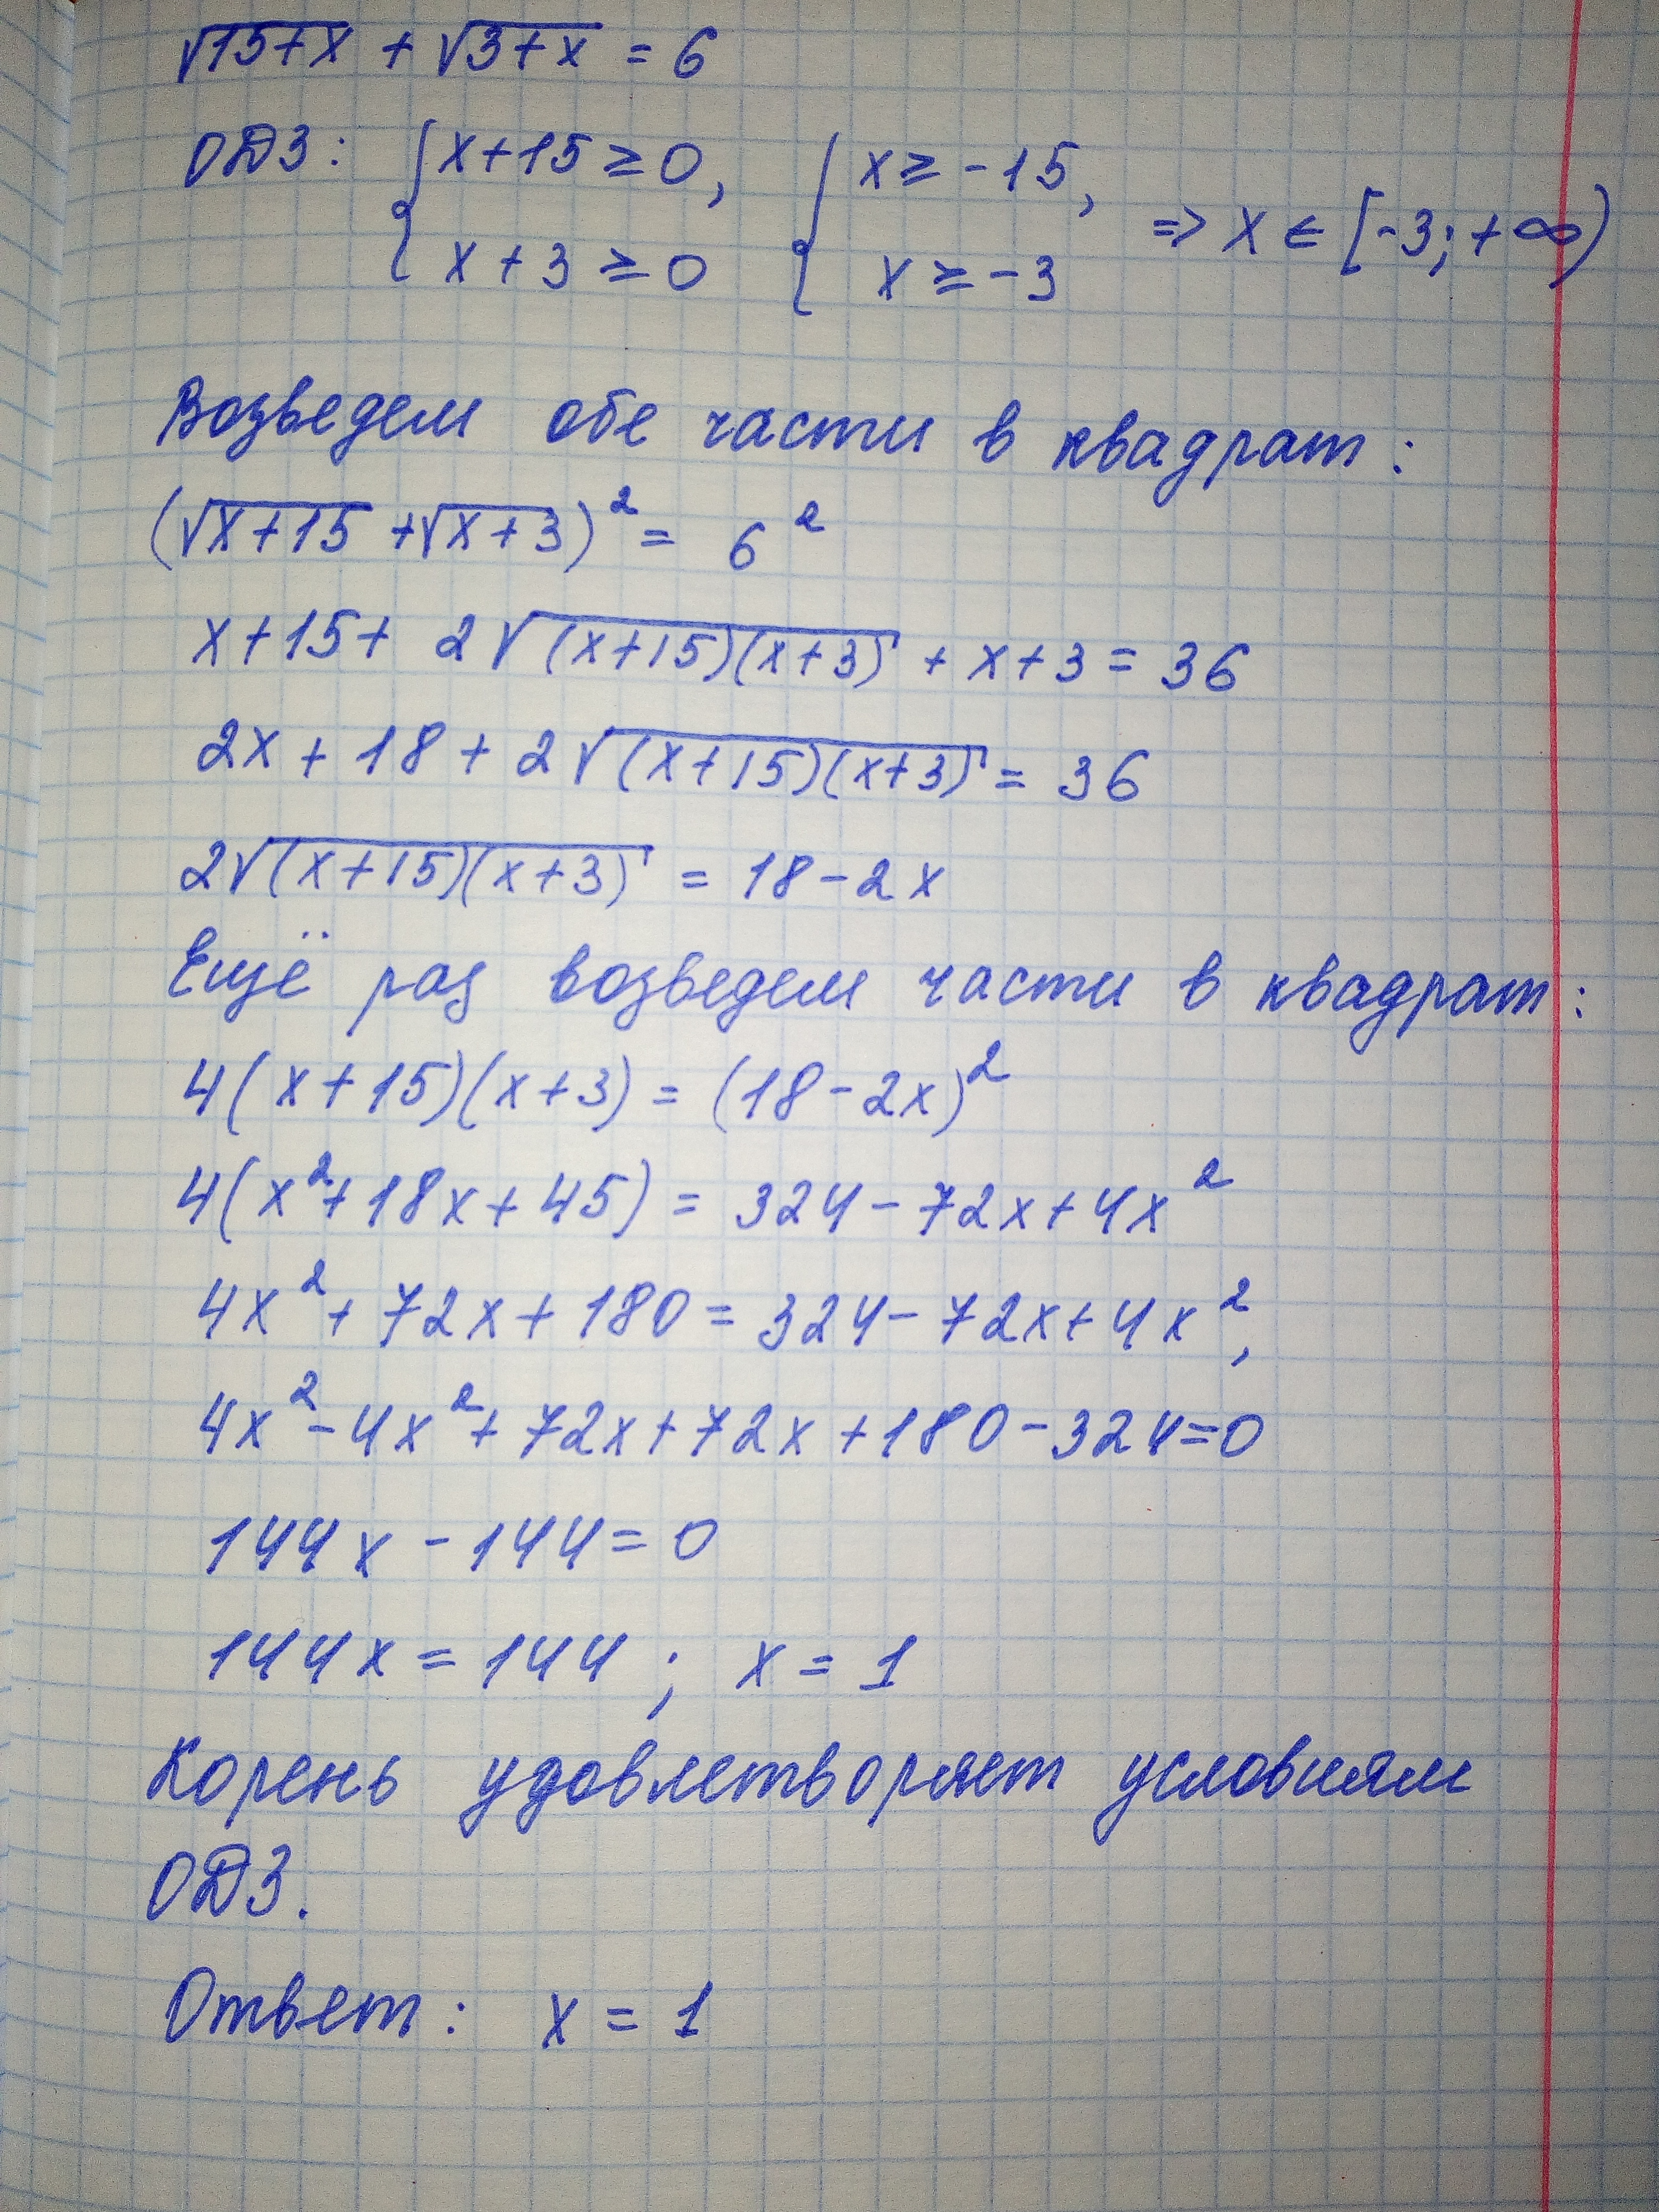 √15+x + √3+x = 6
ОДЗ: { x+15 ≥ 0, x+3 ≥ 0 { x ≥ -15, x ≥ -3 => x ∈ [-3; +∞)
Возведем обе части в квадрат:
(√x+15 + √x+3)² = 6²
x+15+ 2√(x+15)(x+3) + x+3 = 36
2x + 18 + 2√(x+15)(x+3) = 36
2√(x+15)(x+3) = 18-2x
Ещё раз возведем части в квадрат:
4(x+15)(x+3) = (18-2x)²
4(x²+18x+45) = 324-72x+4x²
4x²+72x+180 = 324-72x+4x²,
4x²-4x²+72x+72x+180-324=0
144x-144=0
144x = 144; x = 1
Корень удовлетворяет условиям
ОДЗ.
Ответ: x = 1